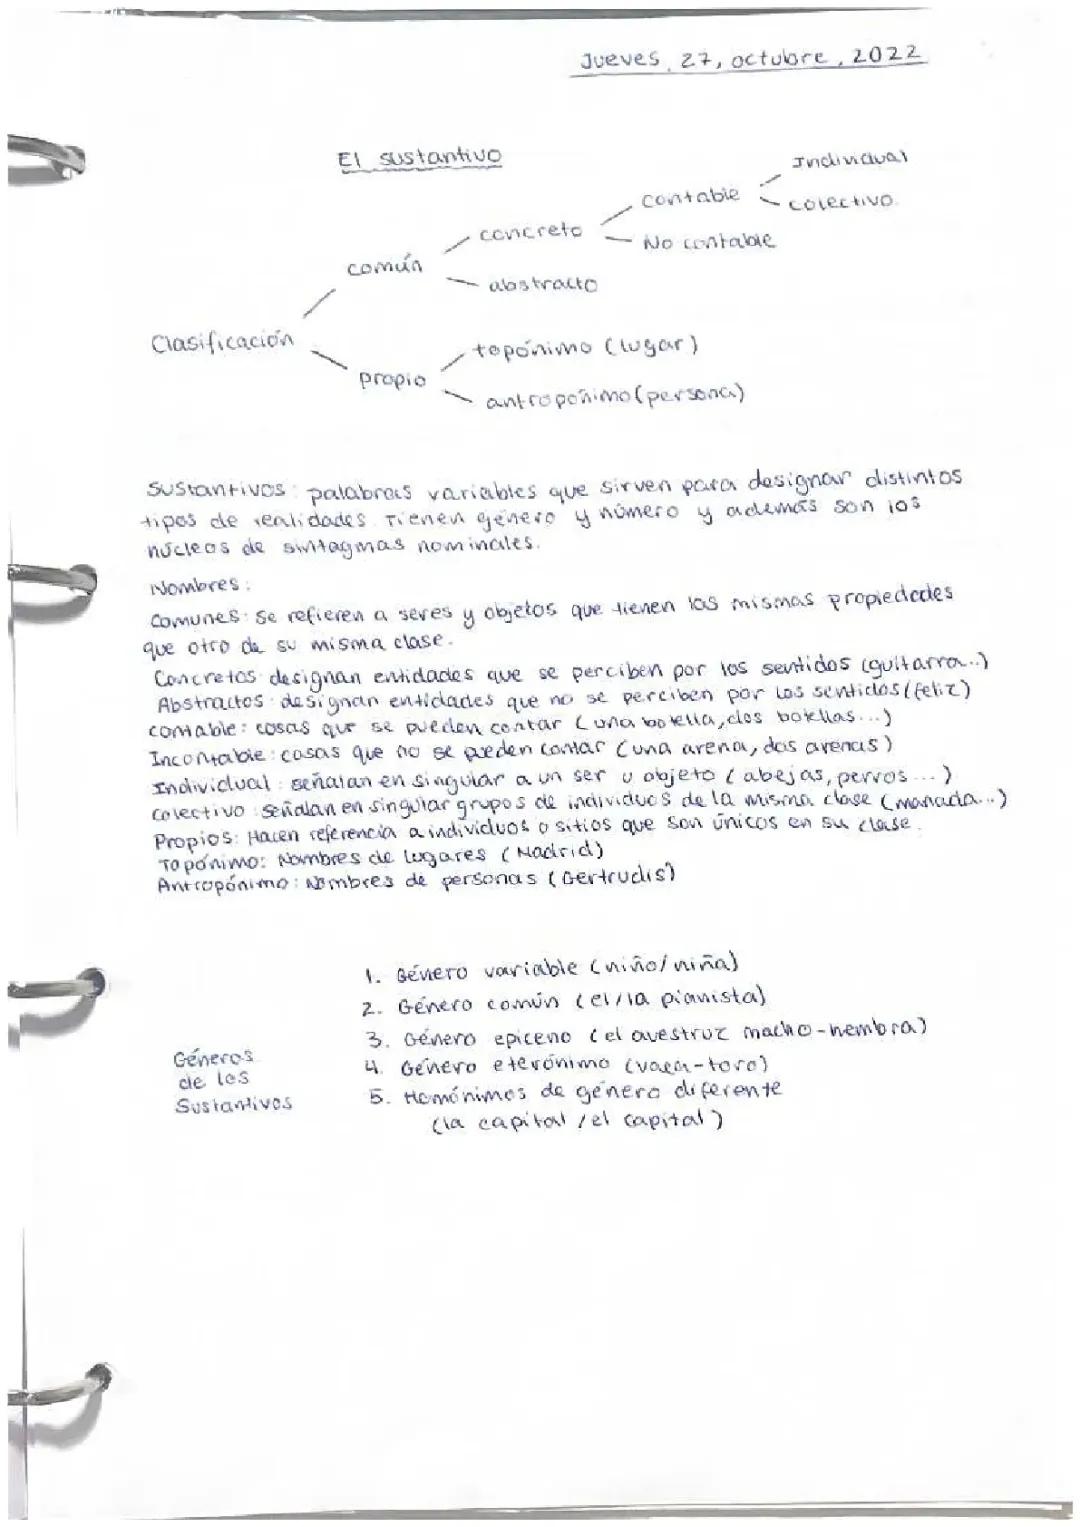 Jueves, 27, octubre, 2022
El sustantivo
Individual
contable
colectivo.
concreto
No contable
común
abstracto
Clasificación
topónimo (lugar)
propio
antropónimo (persona)
Sustantivos: palabras variables que sirven para designar distintos
tipos de realidades. Tienen género y número y además son los
núcleos de sintagmas nominales.
Nombres:
Comunes: Se refieren a seres y objetos que tienen las mismas propiedades
que otro de su misma clase.
Concretos: designan entidades que se perciben por los sentidos (guitarra...)
Abstractos: designan entidades que no se perciben por los sentidos (feliz)
contable: cosas que se pueden contar (una botella, dos botellas...)
Incontable: cosas que no se pueden contar (una arena, dos arenas)
Individual: señalan en singular a un ser u objeto (abejas, perros...)
colectivo: Señalan en singular grupos de individuos de la misma clase (manada...)
Propios: Hacen referencia a individuos o sitios que son únicos en su clase.
Topónimo: Nombres de lugares (Madrid)
Antropónimo: Nombres de personas (Gertrudis)
1. Género variable (niño/niña)
2. Género común (el/la pianista)
3. Género epiceno (el avestruz macho-hembra)
Géneros
4. Género eterónimo (vaca-toro)
de los
5. Homónimos de género diferente
Sustantivos
(la capital / el capital)